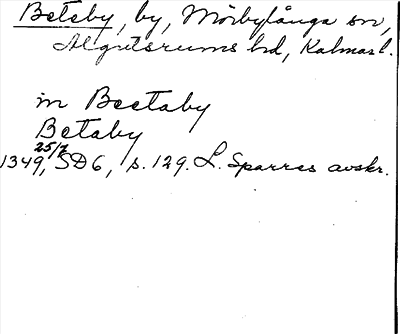 Beteby, by, Mörbylånga sn,
Algutsrums hd, Kalmar l.
in Beetaby
Betaby
25/7
1349, SD 6, s. 129. L. Sparres avskr.